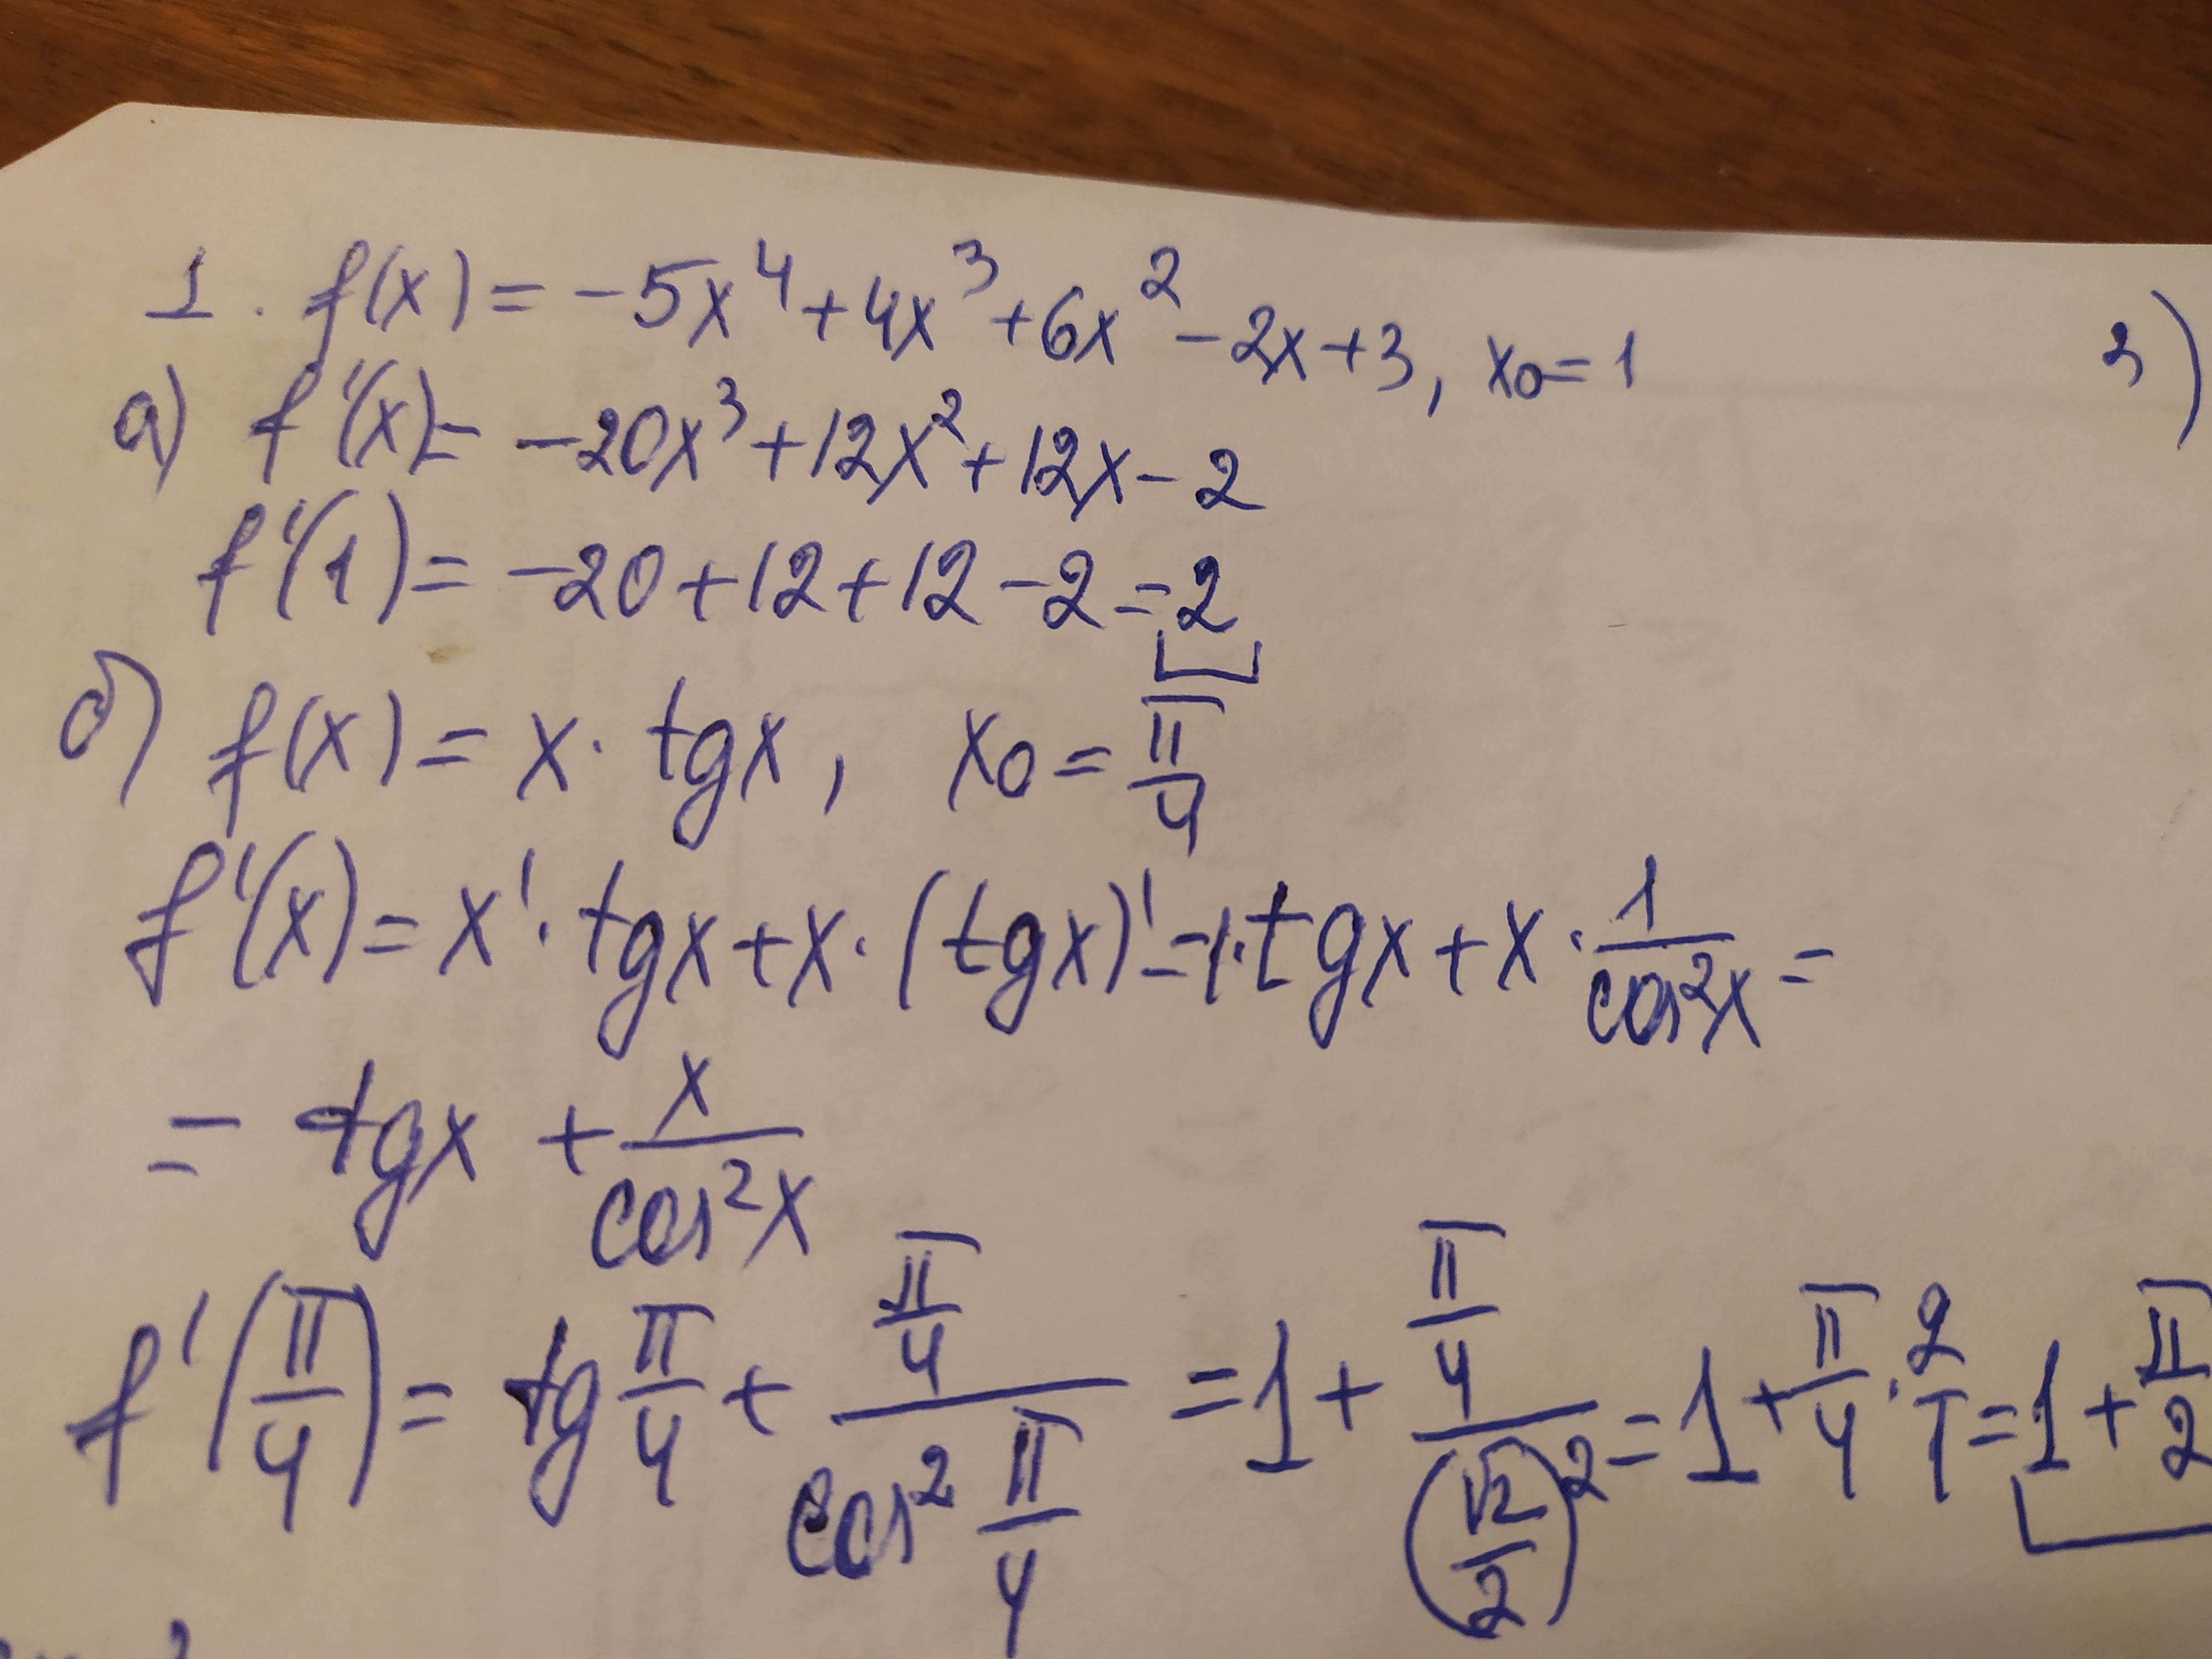 1. f(x) = -5x⁴ + 4x³ + 6x² - 2x + 3, x₀ = 1
а) f'(x) = -20x³ + 12x² + 12x - 2
f'(1) = -20 + 12 + 12 - 2 = 2
б) f(x) = x · tgx, x₀ = π/4
f'(x) = x' · tgx + x · (tgx)' = 1 · tgx + x · 1/cos²x =
= tgx + x/cos²x
f'(π/4) = tg π/4 + (π/4)/(cos² π/4) = 1 + (π/4)/(√2/2)² = 1 + π/4 · 2/1 = 1 + π/2